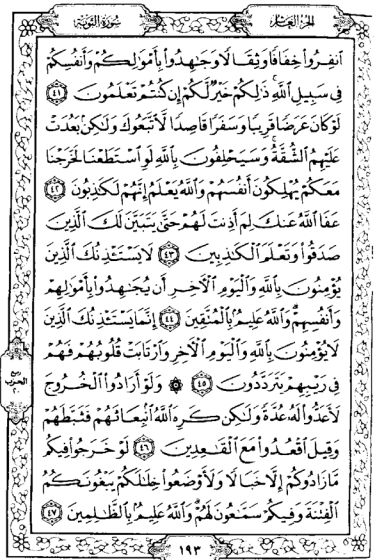 الجزء العاشر
سورة التوبة
ٱنفِرُوا۟ خِفَافًا وَثِقَالًا وَجَٰهِدُوا۟ بِأَمْوَٰلِكُمْ وَأَنفُسِكُمْ
فِى سَبِيلِ ٱللَّهِ ذَٰلِكُمْ خَيْرٌ لَّكُمْ إِن كُنتُمْ تَعْلَمُونَ ٤١
لَوْ كَانَ عَرَضًا قَرِيبًا وَسَفَرًا قَاصِدًا لَّٱتَّبَعُوكَ وَلَٰكِنۢ بَعُدَتْ
عَلَيْهِمُ ٱلشُّقَّةُ وَسَيَحْلِفُونَ بِٱللَّهِ لَوِ ٱسْتَطَعْنَا لَخَرَجْنَا
مَعَكُمْ يُهْلِكُونَ أَنفُسَهُمْ وَٱللَّهُ يَعْلَمُ إِنَّهُمْ لَكَٰذِبُونَ ٤٢
عَفَا ٱللَّهُ عَنكَ لِمَ أَذِنتَ لَهُمْ حَتَّىٰ يَتَبَيَّنَ لَكَ ٱلَّذِينَ
صَدَقُوا۟ وَتَعْلَمَ ٱلْكَٰذِبِينَ ٤٣ لَا يَسْتَـْٔذِنُكَ ٱلَّذِينَ
يُؤْمِنُونَ بِٱللَّهِ وَٱلْيَوْمِ ٱلْءَاخِرِ أَن يُجَٰهِدُوا۟ بِأَمْوَٰلِهِمْ
وَأَنفُسِهِمْ وَٱللَّهُ عَلِيمٌۢ بِٱلْمُتَّقِينَ ٤٤ إِنَّمَا يَسْتَـْٔذِنُكَ ٱلَّذِينَ
لَا يُؤْمِنُونَ بِٱللَّهِ وَٱلْيَوْمِ ٱلْءَاخِرِ وَٱرْتَابَتْ قُلُوبُهُمْ فَهُمْ
فِى رَيْبِهِمْ يَتَرَدَّدُونَ ٤٥ ۞ وَلَوْ أَرَادُوا۟ ٱلْخُرُوجَ
لَأَعَدُّوا۟ لَهُۥ عُدَّةً وَلَٰكِن كَرِهَ ٱللَّهُ ٱنۢبِعَاثَهُمْ فَثَبَّطَهُمْ
وَقِيلَ ٱقْعُدُوا۟ مَعَ ٱلْقَٰعِدِينَ ٤٦ لَوْ خَرَجُوا۟ فِيكُم
مَّا زَادُوكُمْ إِلَّا خَبَالًا وَلَأَوْضَعُوا۟ خِلَٰلَكُمْ يَبْغُونَكُمُ
ٱلْفِتْنَةَ وَفِيكُمْ سَمَّٰعُونَ لَهُمْ وَٱللَّهُ عَلِيمٌۢ بِٱلظَّٰلِمِينَ ٤٧
ربع
الحزب
٢٠
١٩٣